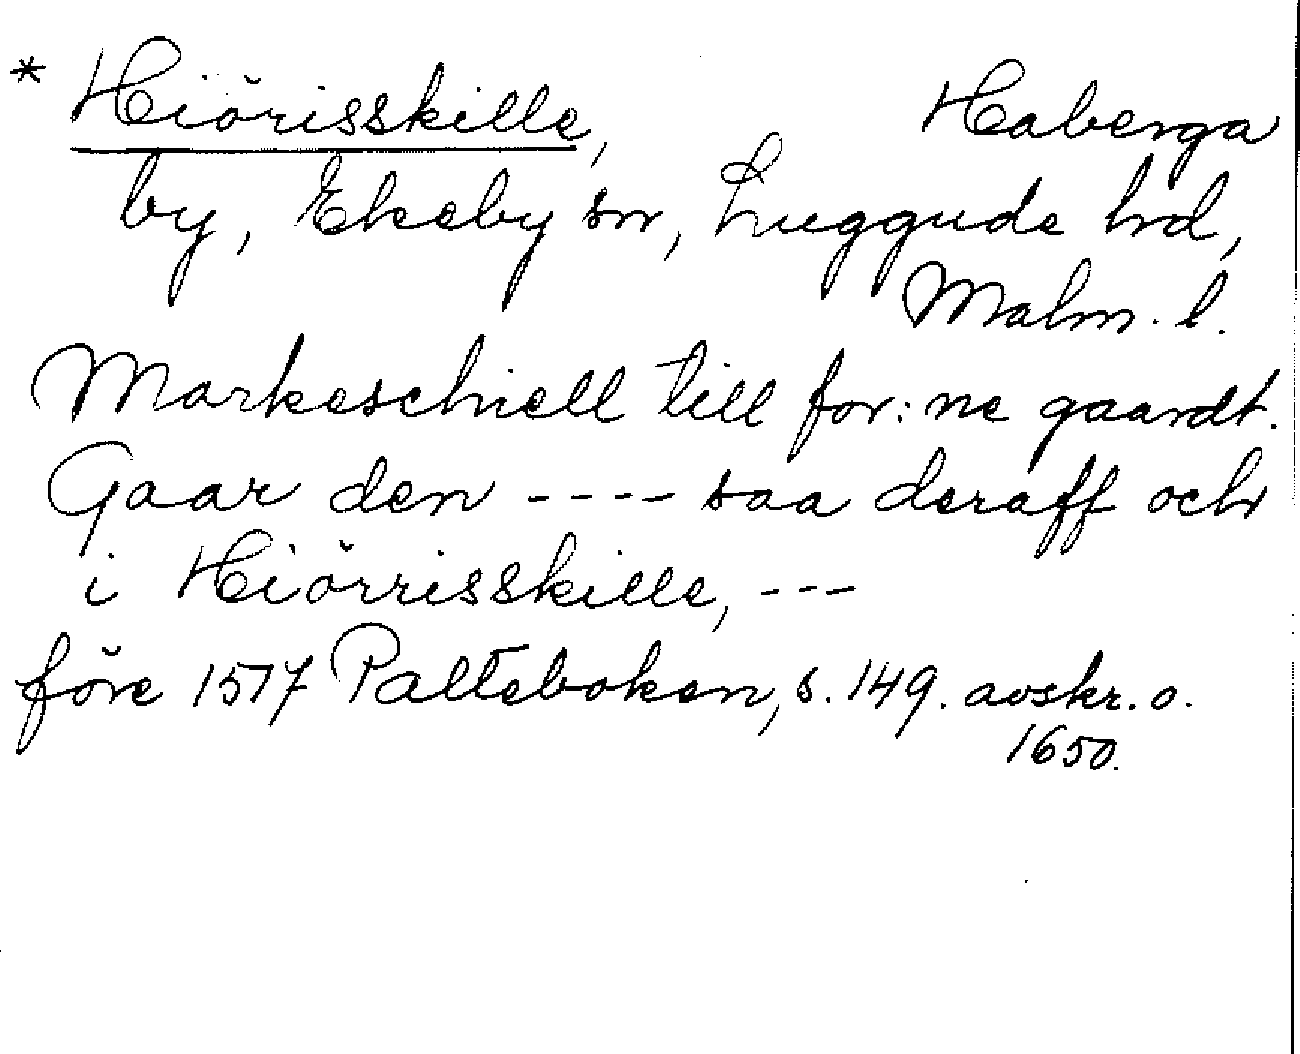 * Hiörisskille, Haberga
by, Ekeby sn, Luggude hd,
Malm. l.
Markeschiell till for: ne gaardt.
Gaar den ---- saa deraff och
i Hiörrisskille, ---
före 1517 Palteboken, s. 149. avskr. o.
1650.